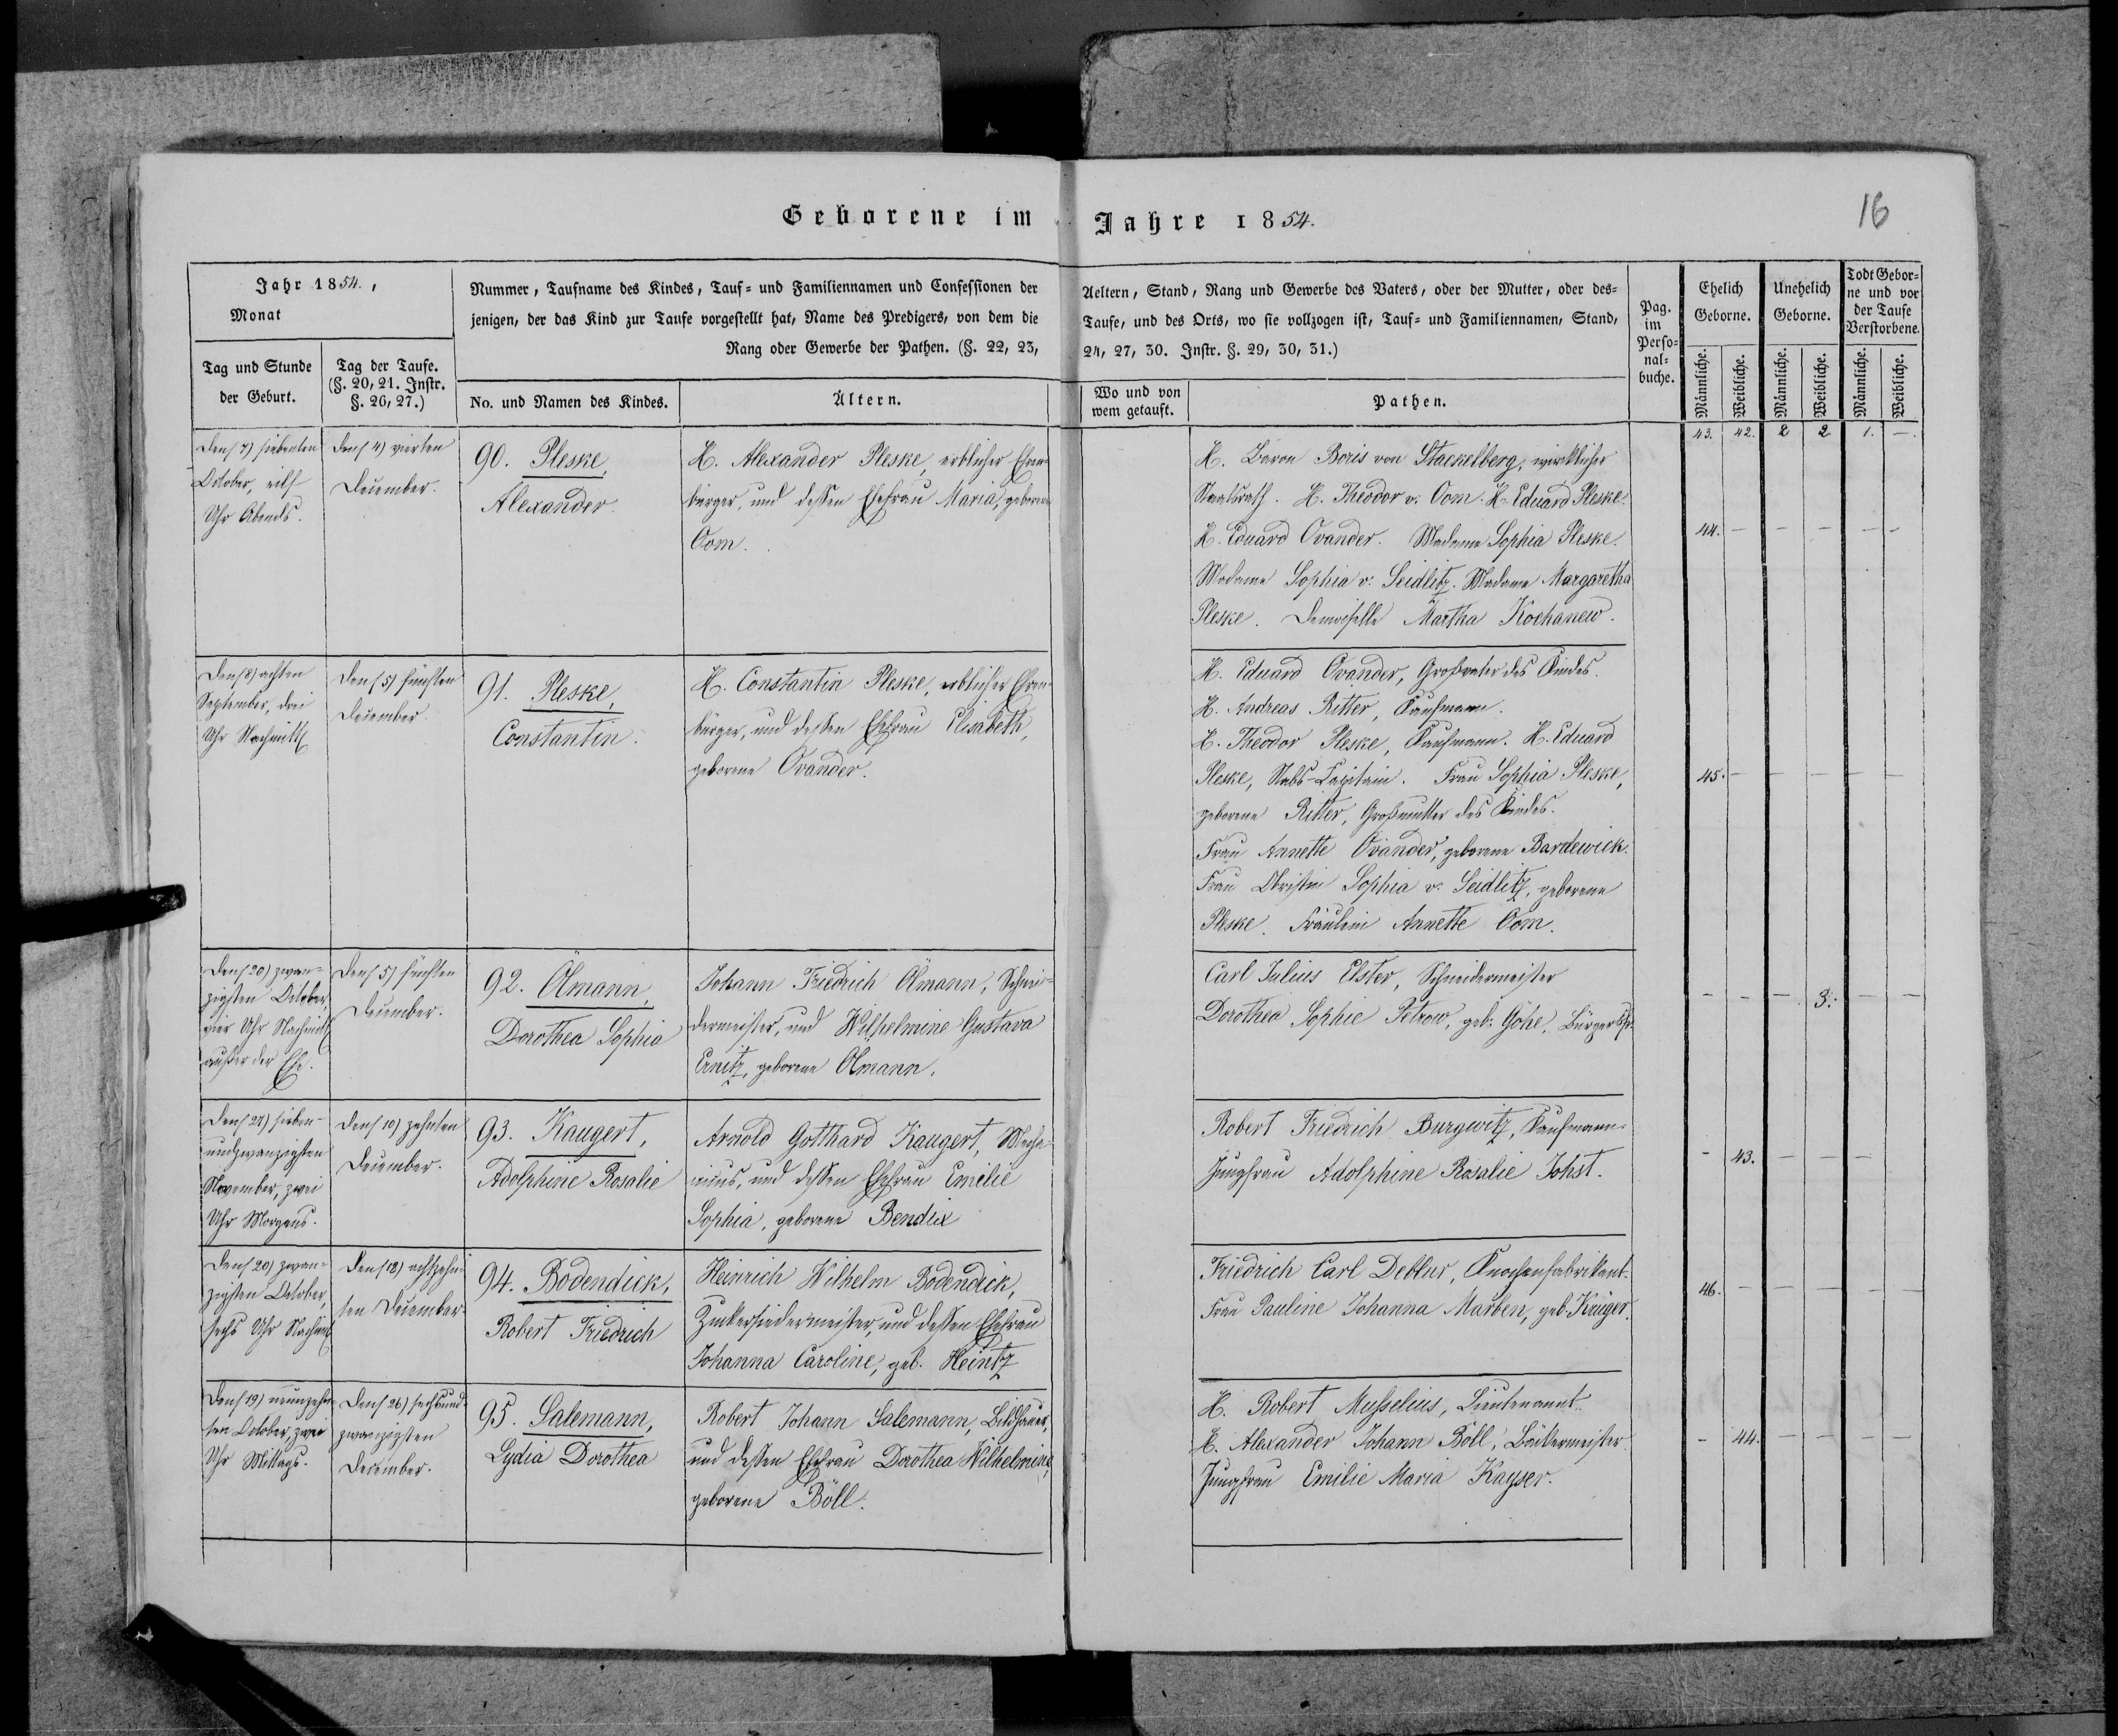 Geborene im Jahre 1854.
16
Jahr 1854.,
Monat
Tag und Stunde
der Geburt.
Tag der Taufe.
(§. 20, 21. Instr.
§. 26, 27.)
Nummer, Taufname des Kindes, Tauf- und Familiennamen und Confessionen der
jenigen, der das Kind zur Taufe vorgestellt hat, Name des Predigers, von dem die
Rang oder Gewerbe der Pathen. (§. 22, 23,
No. und Namen des Kindes.
Ältern.
Aeltern, Stand, Rang und Gewerbe des Vaters, oder der Mutter, oder des-
Taufe, und des Orts, wo sie vollzogen ist, Tauf- und Familiennamen, Stand,
24, 27, 30. Instr. §. 29, 30, 31.)
Wo und von
wem getauft.
Pathen.
Pag.
im
Perso-
nal-
buche.
Ehelich
Geborne.
Unehelich
Geborne.
Todt Gebor-
ne und vor
der Taufe
Verstorbene.
Männliche.
Weibliche.
Männliche.
Weibliche.
Männliche.
Weibliche.
43. 42. 2 2 1. —.
Den (7) siebenten
October, eilf
Uhr Abends.
Den (4) vierten
December.
90. Pleske,
Alexander.
H. Alexander Pleske, erblicher Ehren-
bürger, und dessen Ehefrau Maria, geborene
Oom.
H. Baron Boris von Stackelberg, wirklicher
Staatsrath. H. Theodor v. Oom. H. Eduard Pleske.
H. Eduard Ovander. Madame Sophia Pleske.
Madame Sophia v. Seidlitz. Madame Margaretha
Pleske. Demoiselle Martha Kochanew.
44. — — — — —
Den (8) achten
September, drei
Uhr Nachmitt
Den (5) fünften
December.
91. Pleske,
Constantin.
H. Constantin Pleske, erblicher Ehren-
bürger, und dessen Ehefrau Elisabeth,
geborene Ovander.
H. Eduard Ovander, Großvater des Kindes.
H. Andreas Ritter, Kaufmann.
H. Theodor Pleske, Kaufmann. H. Eduard
Pleske, Stabs-Capitain. Frau Sophia Pleske,
geborene Ritter, Großmutter des Kindes.
Frau Annette Ovander, geborene Bardewick.
Frau Obristin Sophia v. Seidlitz, geborene
Pleske. Fräulein Annette Oom.
45. — — — — —
Den (20) zwan-
zigsten October,
vier Uhr Nachmitt
außer der Ehe.
Den (5) fünften
December.
92. Ölmann,
Dorothea Sophia
Johann Friedrich Ölmann, Schnei-
dermeister, und Wilhelmine Gustava
Ernitz, geborene Olmann.
Carl Julius Elster, Schneidermeister
Dorothea Sophie Petrow, geb. Göhe,
— — — 3. — —
Den (27) sieben-
undzwanzigsten
November, zwei
Uhr Morgens.
Den (10) zehnten
December.
93. Kaugert,
Adolphine Rosalie
Arnold Gotthard Kaugert, Mecha-
nicus, und dessen Ehefrau Emilie
Sophia, geborene Bendix
Robert Friedrich Burgwitz, Kaufmann.
Jungfrau Adolphine Rosalie Johst.
- 43. — — —
Den (20) zwan-
zigsten October,
sechs Uhr Nachmitt
Den (18) achtzehn-
ten December.
94. Bodendick,
Robert Friedrich
Heinrich Wilhelm Bodendick,
Zuckersiedermeister, und dessen Ehefrau
Johanna Caroline, geb. Heintz
Friedrich Carl Deblur, Knochenfabrikant.
Frau Pauline Johanna Marben, geb. Krüger.
46. — — — — —
Den (19) neunzehn-
ten October, zwei
Uhr Mittags.
Den (26) sechsund-
zwanzigsten
December.
95. Salemann,
Lydia Dorothea
Robert Johann Salemann, Bildhauer,
und dessen Ehefrau Dorothea Wilhelmine,
geborene Böll.
H. Robert Musselius, Lieutenannt.
H. Alexander Johann Böll, Bäckermeister.
Jungfrau Emilie Maria Kayser.
- 44. — — — —